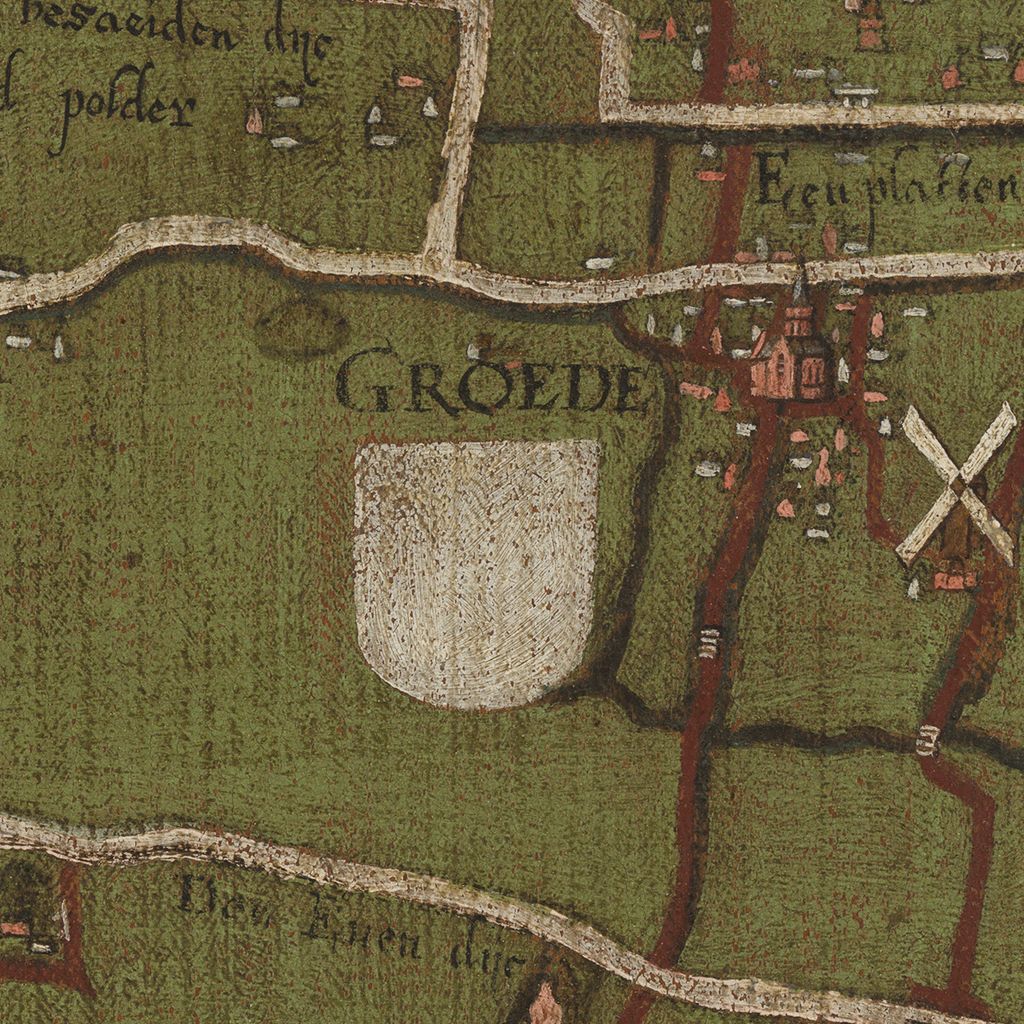 besaeiden dyc
polder
Een platten
GROEDE
Den Euen dyc